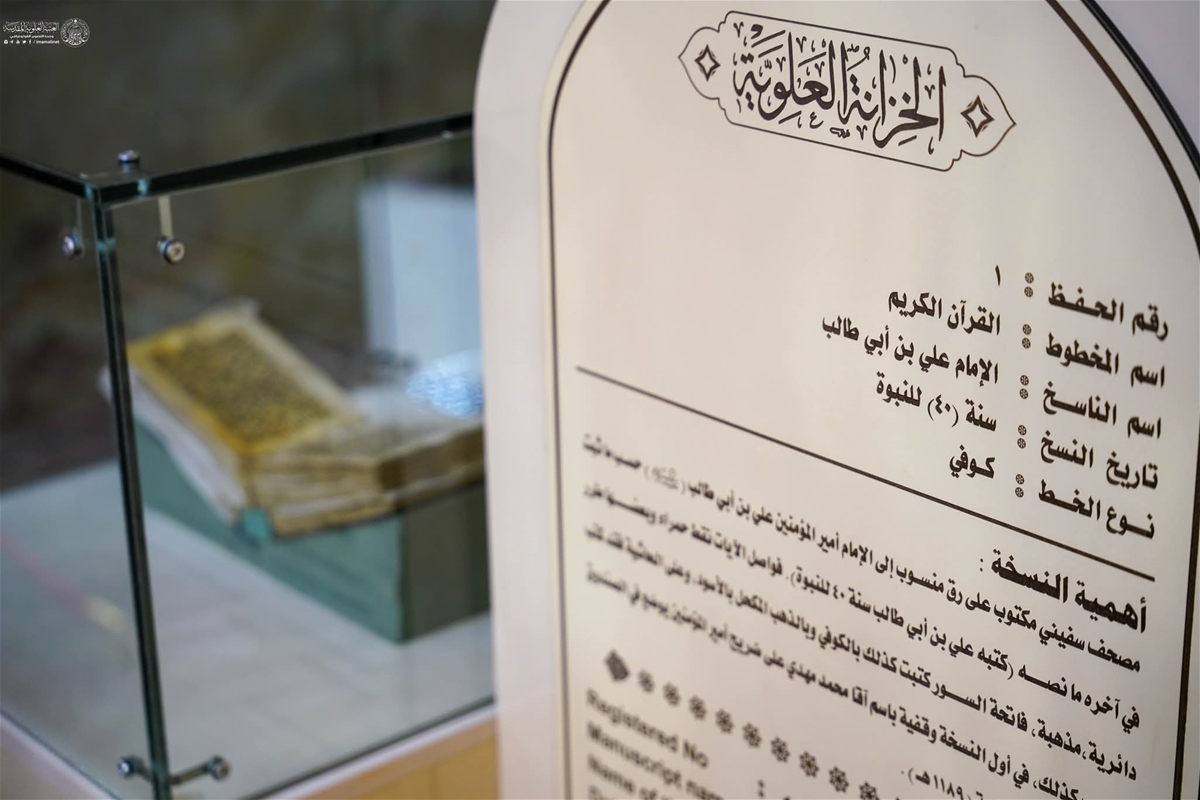 العتبة العلوية المقدسة
imamalinet
الخِزانَةُ العَلَوِيَّة
رقم الحفظ : ١
اسم المخطوط : القرآن الكريم
اسم الناسخ : الإمام علي بن أبي طالب
تاريخ النسخ : سنة (٤٠) للنبوة
نوع الخط : كوفي
أهمية النسخة :
مصحف سفيني مكتوب على رق منسوب إلى الإمام أمير المؤمنين علي بن أبي طالب ( ) حسب ما ثبت
في آخره ما نصه (كتبه علي بن أبي طالب سنة ٤٠ للنبوة). فواصل الآيات نقط حمراء وبعضها مطرر
دائرية، مذهبة، فاتحة السور كتبت كذلك بالكوفي وبالذهب المكحل بالأسود، وعلى الحاشية فقد كتب
كذلك، في أول النسخة وقفية باسم آقا محمد مهدي على ضريح أمير المؤمنين يوضع في
(١١٨٩هـ).
Registered No
Manuscript name :
Name of